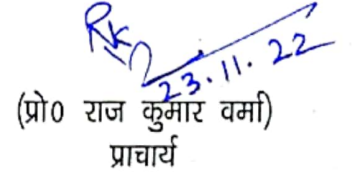 23.11.22
(प्रो० राज कुमार वर्मा)
प्राचार्य